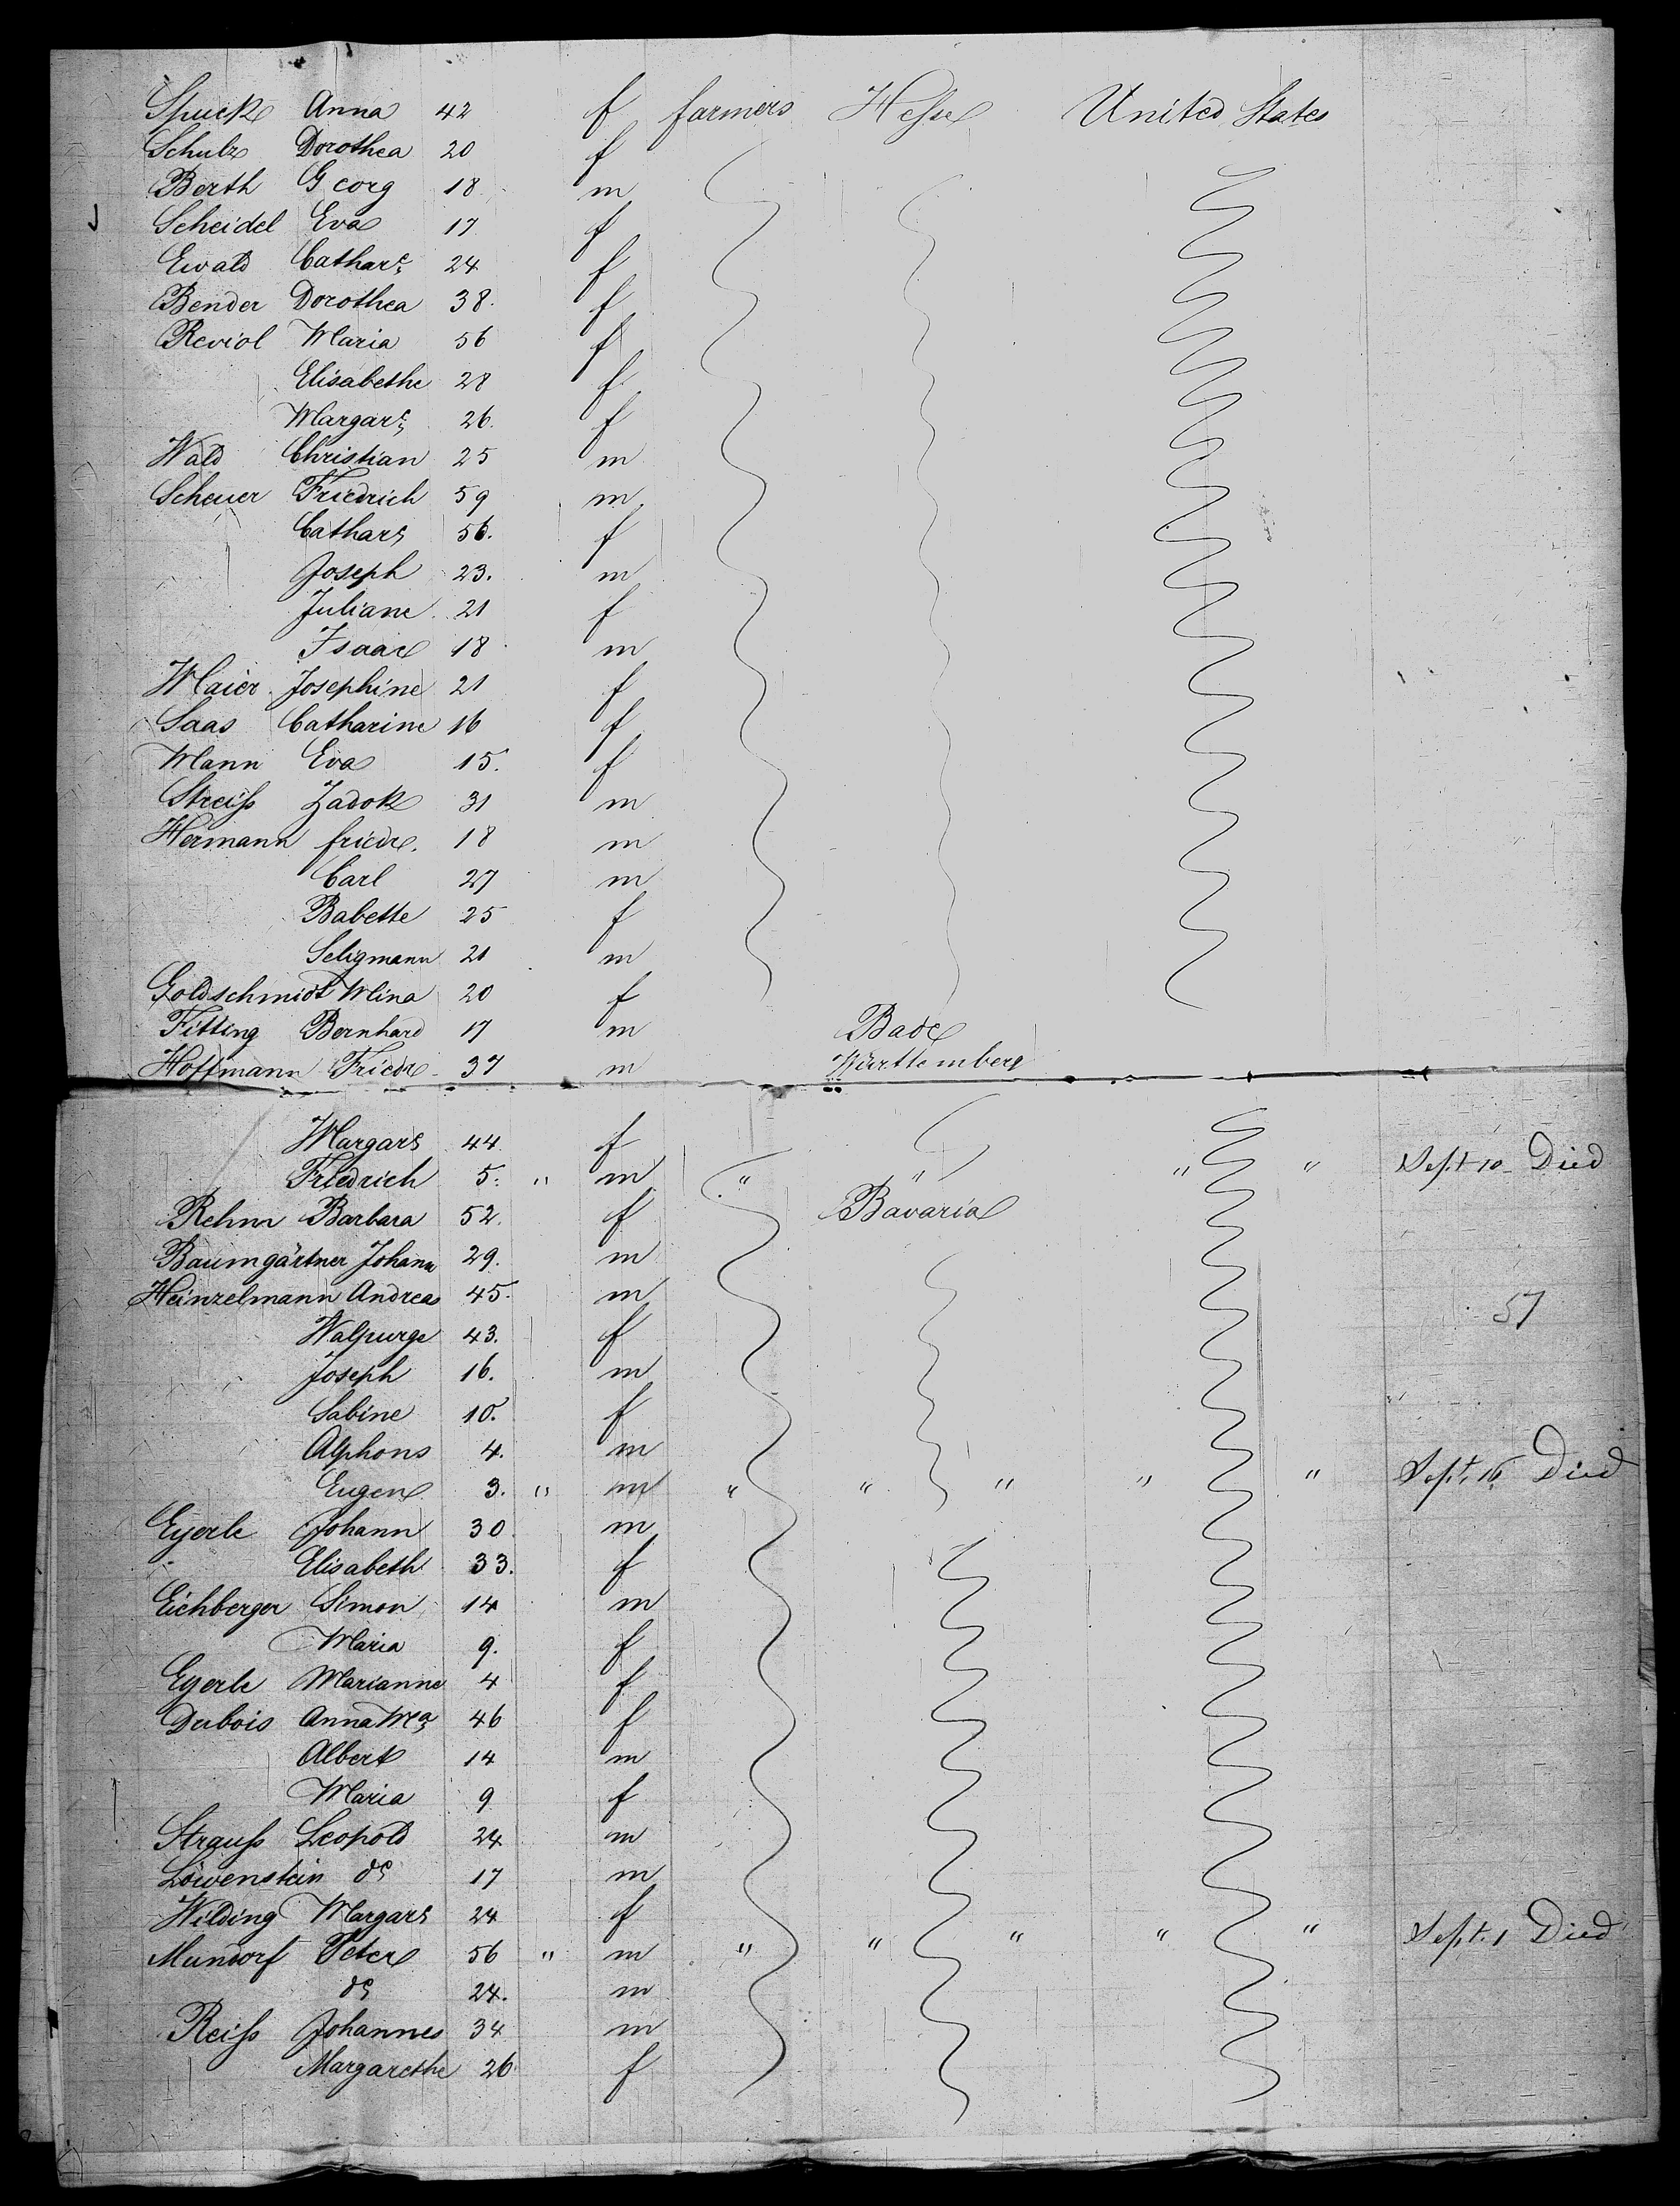 Spuck Anna 42 f farmers Hesse United States
Schulz Dorothea 20 f
Berth Georg 18 m
Scheidel Eva 17 f
Ewald Cathar. 24 f
Bender Dorothea 38. f
Reviol Maria 56 f
Elisabethe 28 f
Margar. 26. f
Wald Christian 25 m
Scheuer Friedrich 59 m
Cathar. 56. f
Joseph 23. m
Juliane 21 f
Isaac 18 m
Maier Josephine 21 f
Saas Catharine 16 f
Mann Eva 15. f
Streiß Zadok 31 m
Hermann friedr. 18 m
Carl 27 m
Babette 25 f
Seligmann 21 m
Goldschmidt Mina 20 f
Fitting Bernhard 17 m Bade
Hoffmann Friedr. 37 m Württemberg
Margar. 44 f
Friedrich 5. " m " " " " Sept 10 Died
Rehm Barbara 52. f Bavaria
Baumgärtner Johann 29. m
Heinzelmann Andreas 45. m 57
Walpurge 43. f
Joseph 16. m
Sabine 10. f
Alphons 4. m
Eugen 3. " m " " " " " Sept. 16 Died
Eyerle Johann 30 m
Elisabeth 33. f
Eichberger Simon 14 m
Maria 9. f
Eyerle Marianne 4 f
Dubois Anna Ma 46 f
Albert 14 m
Maria 9 f
Strauß Leopold 24 m
Löwenstein do 17 m
Wilding Margar. 24 f
Mundorf Peter 56 " m " " " " " Sept. 1 Died
do 24. m
Reiß Johannes 34 m
Margarethe 26 f